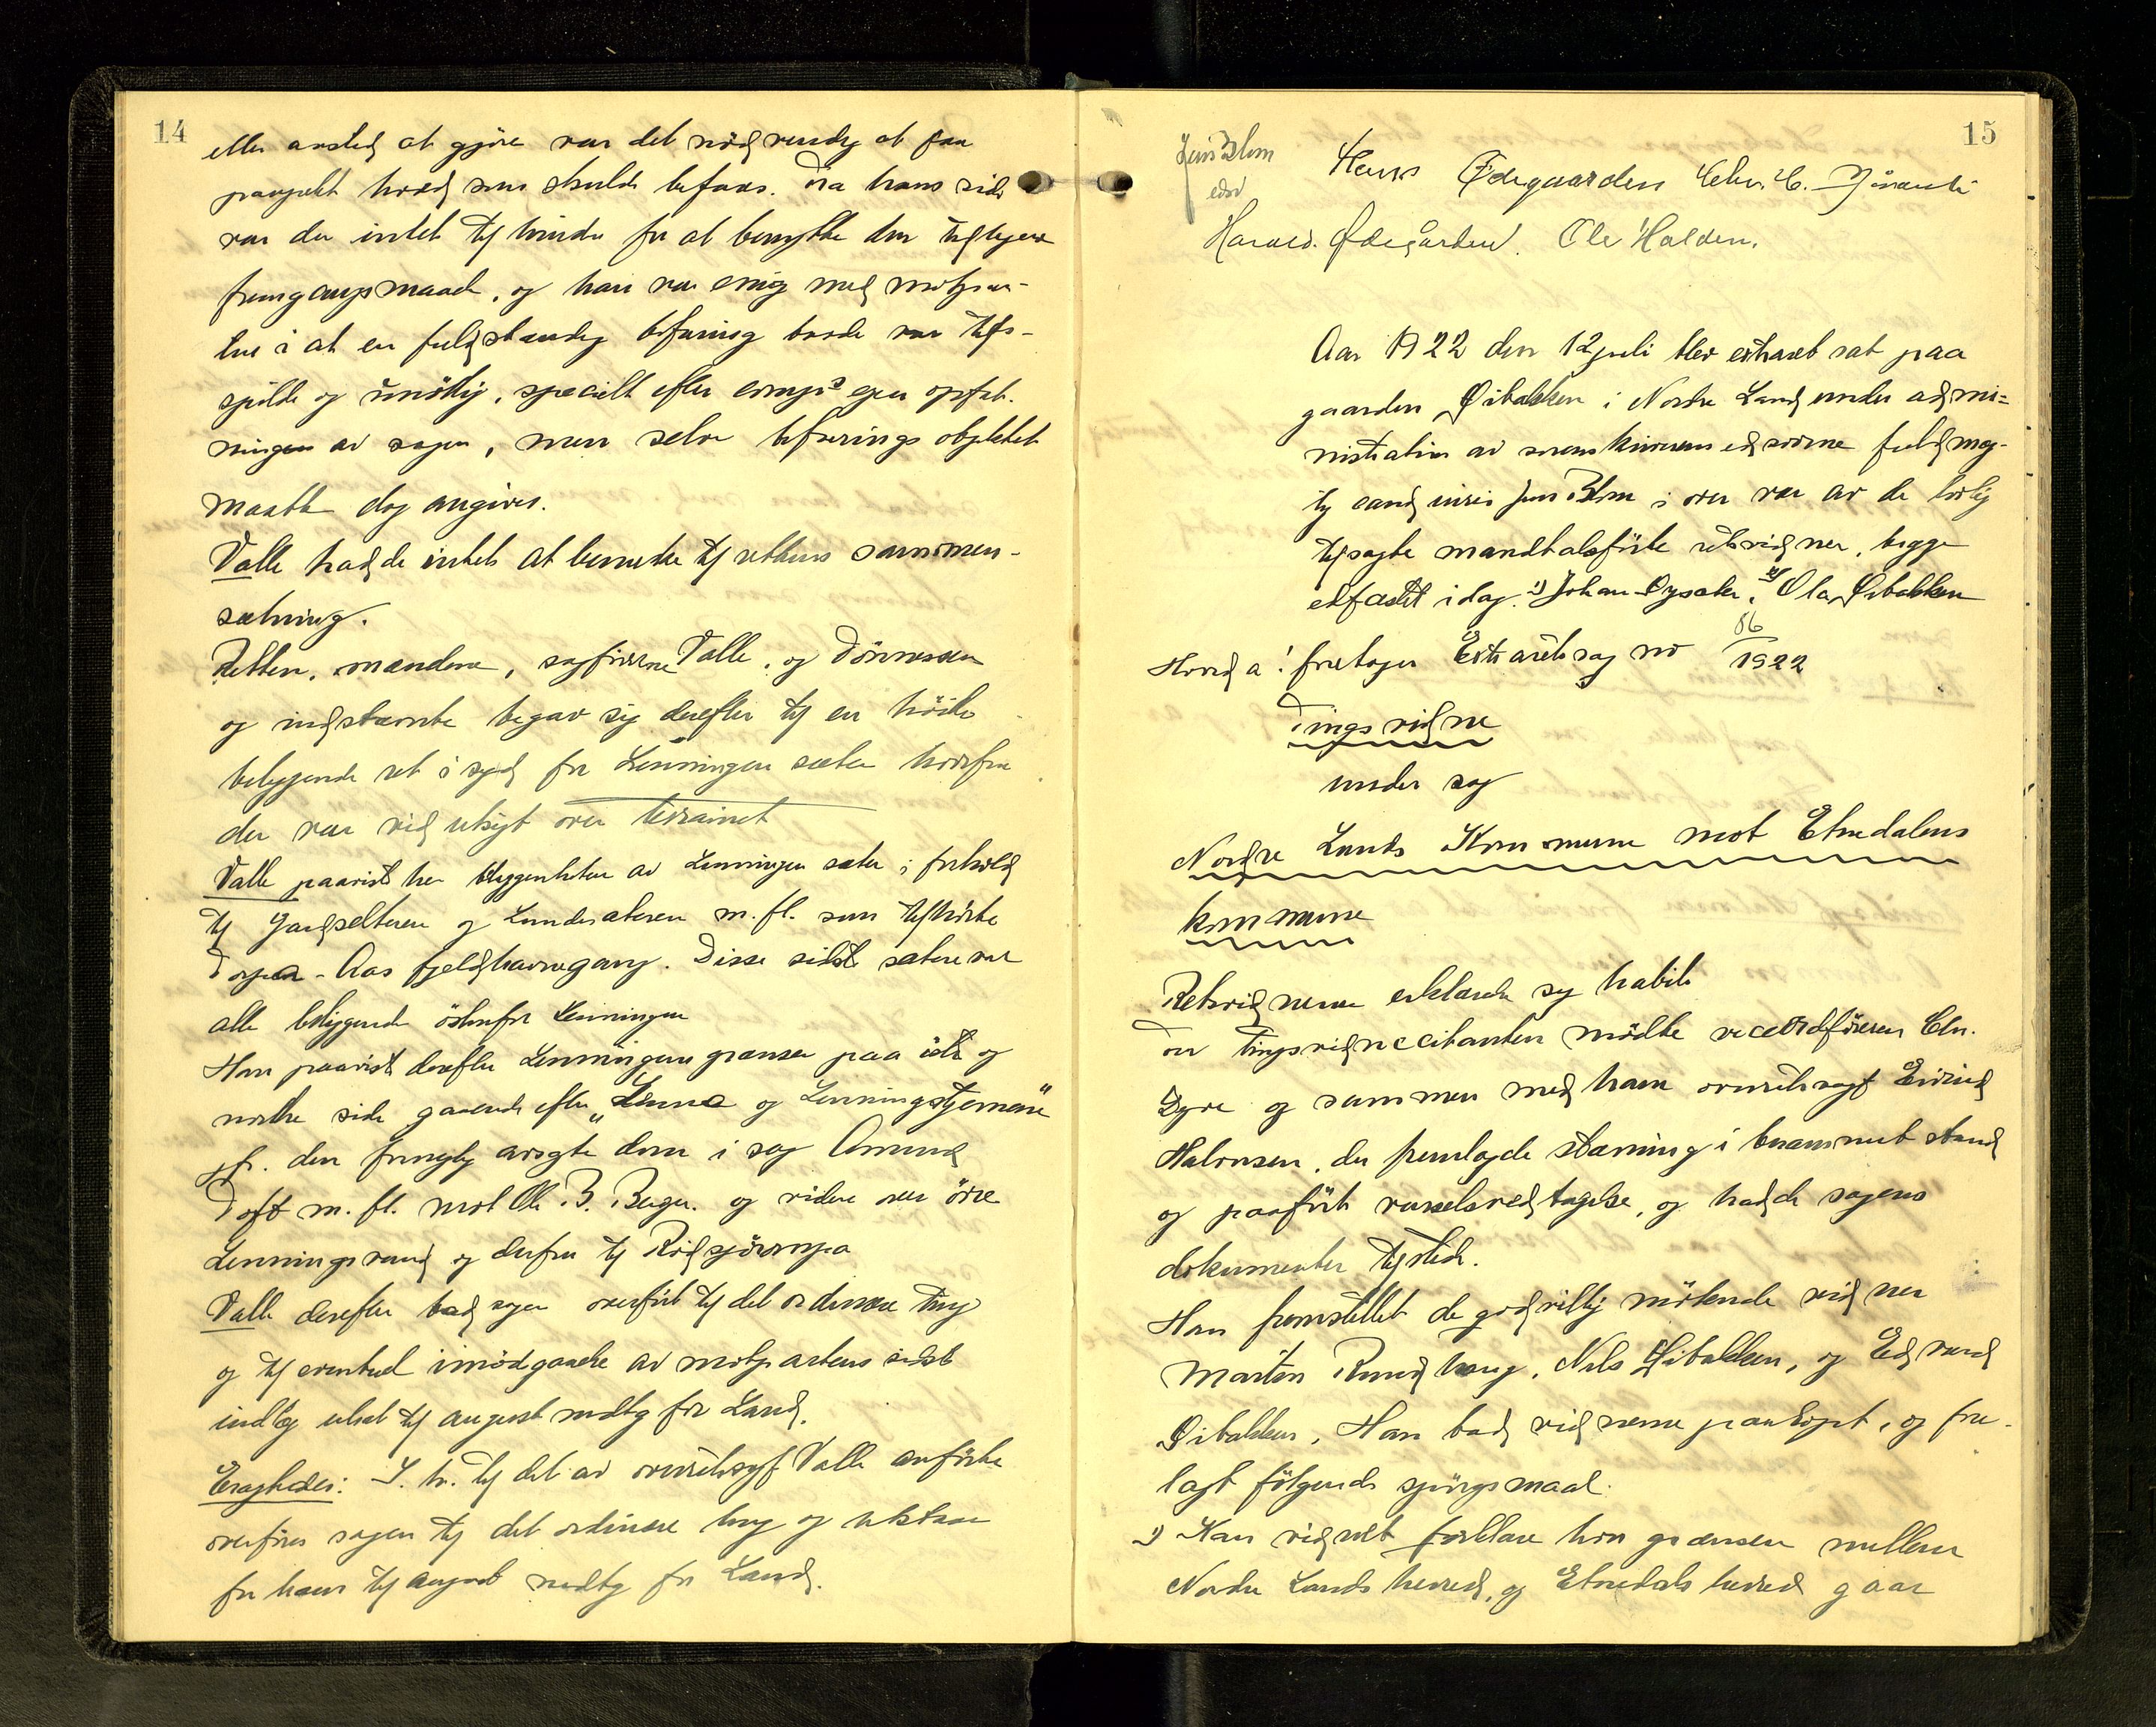 14
eller ansted at gjøre var det nødvendig at faa
paapekt hvad som skulde befares. Fra hans side
var der intet til hinder for at benytte den tilkjen
fremgangsmaade, og han var enig med motpar-
ten i at en fuldstændig befaring vorde var tids-
spilde og unøtig, specielt efter comp's egen opfat-
ningen av sagen, men selve befarings objektet
maatte dog angives.
Valle hadde intet at bemerke til rettens sammen-
sætning.
Retten, mændene, sagførerne Valle, og Tönnessen
og indstevnte begav sig derefter til en høide
beliggende ret i syd for Lenningen sæter hvorfra
der var vid utsigt over terrainet
Valle paaviste her beliggenheten av Lenningen sæter i forhold
til Jordsetteren og Lundesæteren m.fl. som tilhørte
Torpa-Aas fjeldhavnegang. Disse sidste sætere var
alle beliggende østenfor Lenningen
Han paaviste derefter Lenningens grænser paa østre og
nordre side gaaende efter „Lenna og Lenningstjernene"
jfr. den fremlagte avsagte dom i sag Amund
Toft m.fl. mot Ole B. Berger. og videre over øvre
Lenningsvand og derfra til Rødsjøvarpa
Valle derefter bad sagen overført til det ordinære ting
og til eventuel imødegaaelse av motpartens sidste
indlæg utsat til august maatg for Land.
Eragtedes: I. h. til det av overretssagf Valle anførte
overføres sagen til det ordinære ting og utstaar
for ham til august maatg for Land.
15
Jens Blom
edsv
Hans Ødegaarden Chr. C.
Harald Ødegården. Ole Halden.
Aar 1922 den 12 juli blev extraret sat paa
gaarden Øibakken i Nordre Land under admi-
nistration av sorenskriverens edsvorne fuldmæg-
tig cand juris Jens Blom i over vær av de lovlig
tilsagte mandtalsførte retsvidner, begge
edfæstet i dag: 1) Johan Dysater, 2) Ola Øibakken
Hvorda: foretages Extraretssag no 86/1922
Tingsvidne
under sag
Nordre Lands Kommune mot Etnedalens
kommune
Retsvidnerne erklærte sig habile
For tingsvidnecitanten mødte viceordføreren Chr.
Dyre og sammen med ham overretssagf Eivind
Halvorsen, der fremlagde stævning i beramnet stand
og paaført varselsvedtagelse, og hadde sagens
dokumenter tilstede.
Han fremstillet de godvillig møtende vidner
Martin Rundhaug, Nils Øibakken, og Edvard
Øibakken, Han bad vidnerne paaropt, og fore-
lagt følgende spørgsmaal.
1) Kan vidnet forklare hvor grænsen mellem
Nordre Lands herred, og Etnedals herred gaar